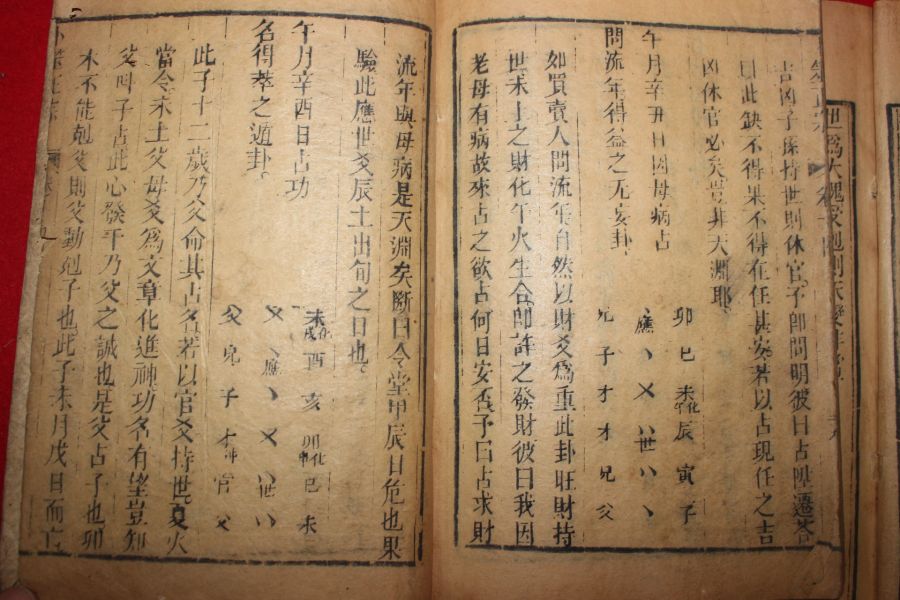 吉凶子孫持世則休官予卽問明彼曰占陞遷答
曰此缺不得果不得在任甚安若以占現任之吉
凶休官必矣豈非天淵耶
午月辛丑日因母病占
問流年得益之无妄卦
卯巳未化午辰寅子
應、乂八世八、
兄子才才兄父
如買賣人問流年自然以財爻爲重此卦旺財持
世未土之財化午火生合卽許之發財彼曰我因
老母有病故來占之欲占何日安否予曰占求財
流年與母病是天淵矣斷曰令堂甲辰日危也果
驗此應世爻辰土出旬之日也
午月辛酉日占功
名得萃之遁卦
未化戌酉亥卯化申巳未
乂應、乂八世八
父兄子才官父
此子十二歲乃父命其占名若以官爻持世夏火
當令未土父母爻爲文章化進神功名有望豈知
父叫子占此心發乎乃父之誠也是父占子也卯
木不能剋父則父動剋子也此子未月戊日而亡